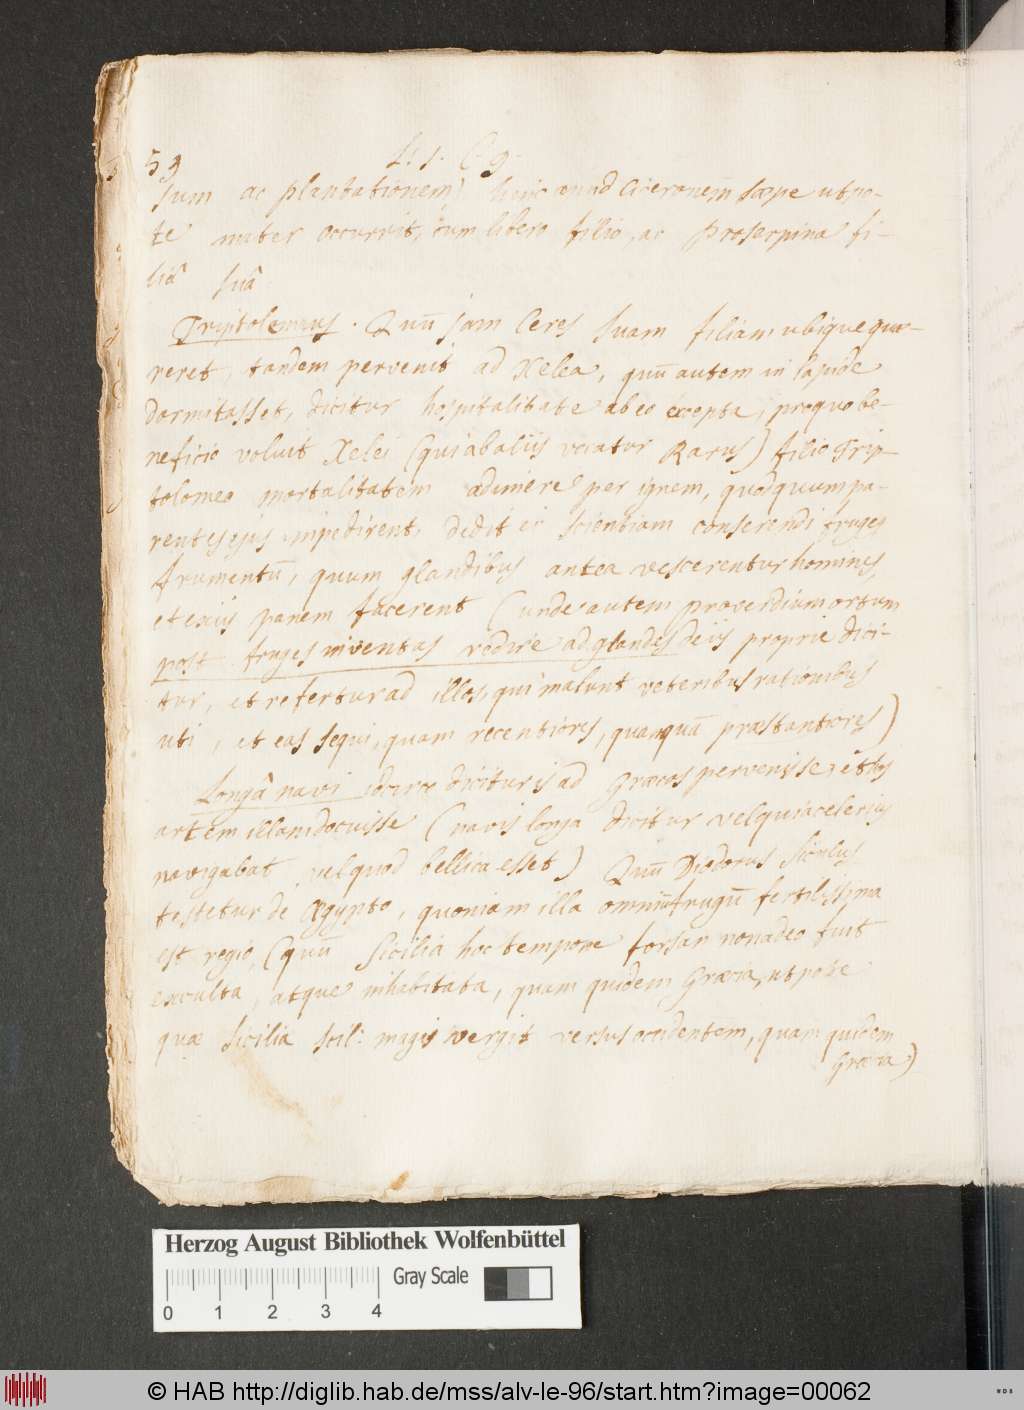 59 L. 1. C. 9.
sum ac plantationem) hinc apud Ciceronem sæpe utpo-
te mater occurrit, cum libero filio, ac Proserpina fi-
liâ suâ
Triptolemus. Quũ jam Ceres suam filiam ubique quæ-
reret, tandem pervenit ad Xelea, quũ autem in lapide
dormitasset, dicitur hospitalitate ab eo excepta, pro quo be-
neficio voluit Xelei (qui ab aliis vocatur Rarus) filio Trip-
tolomeo mortalitatem adimere per ignem, quod quum pa-
rentes ejus impedirent, dedit ei scientiam conserendi fruges
frumentũ, quum glandibus antea vescerentur homines,
et ex iis panem facerent (unde autem proverbium ortum
post fruges inventas redire ad glandes de iis proprie dici-
tur, et refertur ad illos, qui malunt veteribus rationibus
uti, et eas sequi, quam recentiores, quamquã præstantiores)
Longâ navi idcirco dicitur is ad Græcos pervenisse, et hos
artem illam docuisse (navis longa dicitur vel quia celerius
navigabat, vel quod bellica esset) Quũ Diodorus Siculus
testetur de Ægypto, quoniam illa omniũ frugũ fertilissima
est regio, (quũ Sicilia hoc tempore forsan non adeo fuit
exculta, atque inhabitata, quam quidem Græcia, utpote
quæ Sicilia scil: magis vergit versus occidentem, quam quidem
Græcia)
Herzog August Bibliothek Wolfenbüttel
Gray Scale
0 1 2 3 4
© HAB http://diglib.hab.de/mss/alv-le-96/start.htm?image=00062